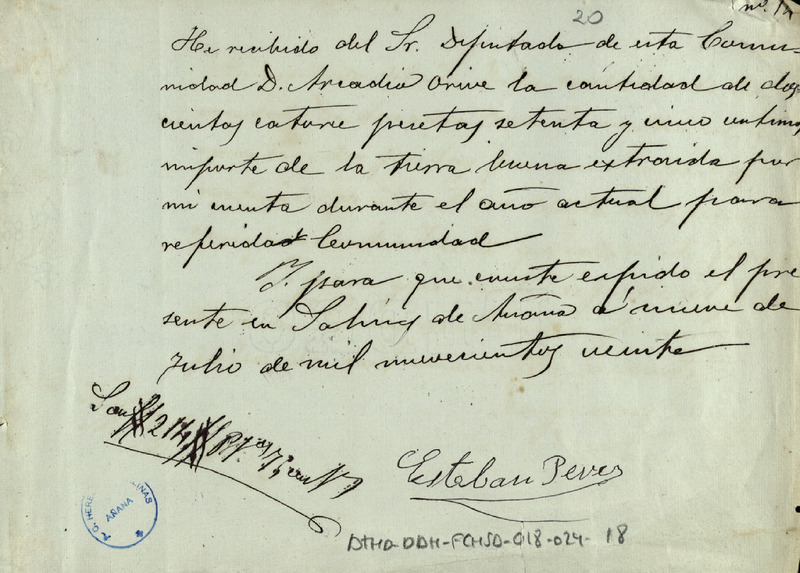 20
nº. 1
He recibido del Sr. Diputado de esta Comu-
nidad D. Arcadio Orive la cantidad de dos
cientos catorce pesetas setenta y cinco centimos
importe de la tierra buena extraida por
mi cuenta durante el año actual para
referida Comunidad
Y para que conste expido el pre
sente en Salinas de Añana á nueve de
Julio de mil novecientos veinte
Son 214 Ptas 75
Esteban Perez
AÑANA
DTHD-DDH-FCHSD-018-024-18